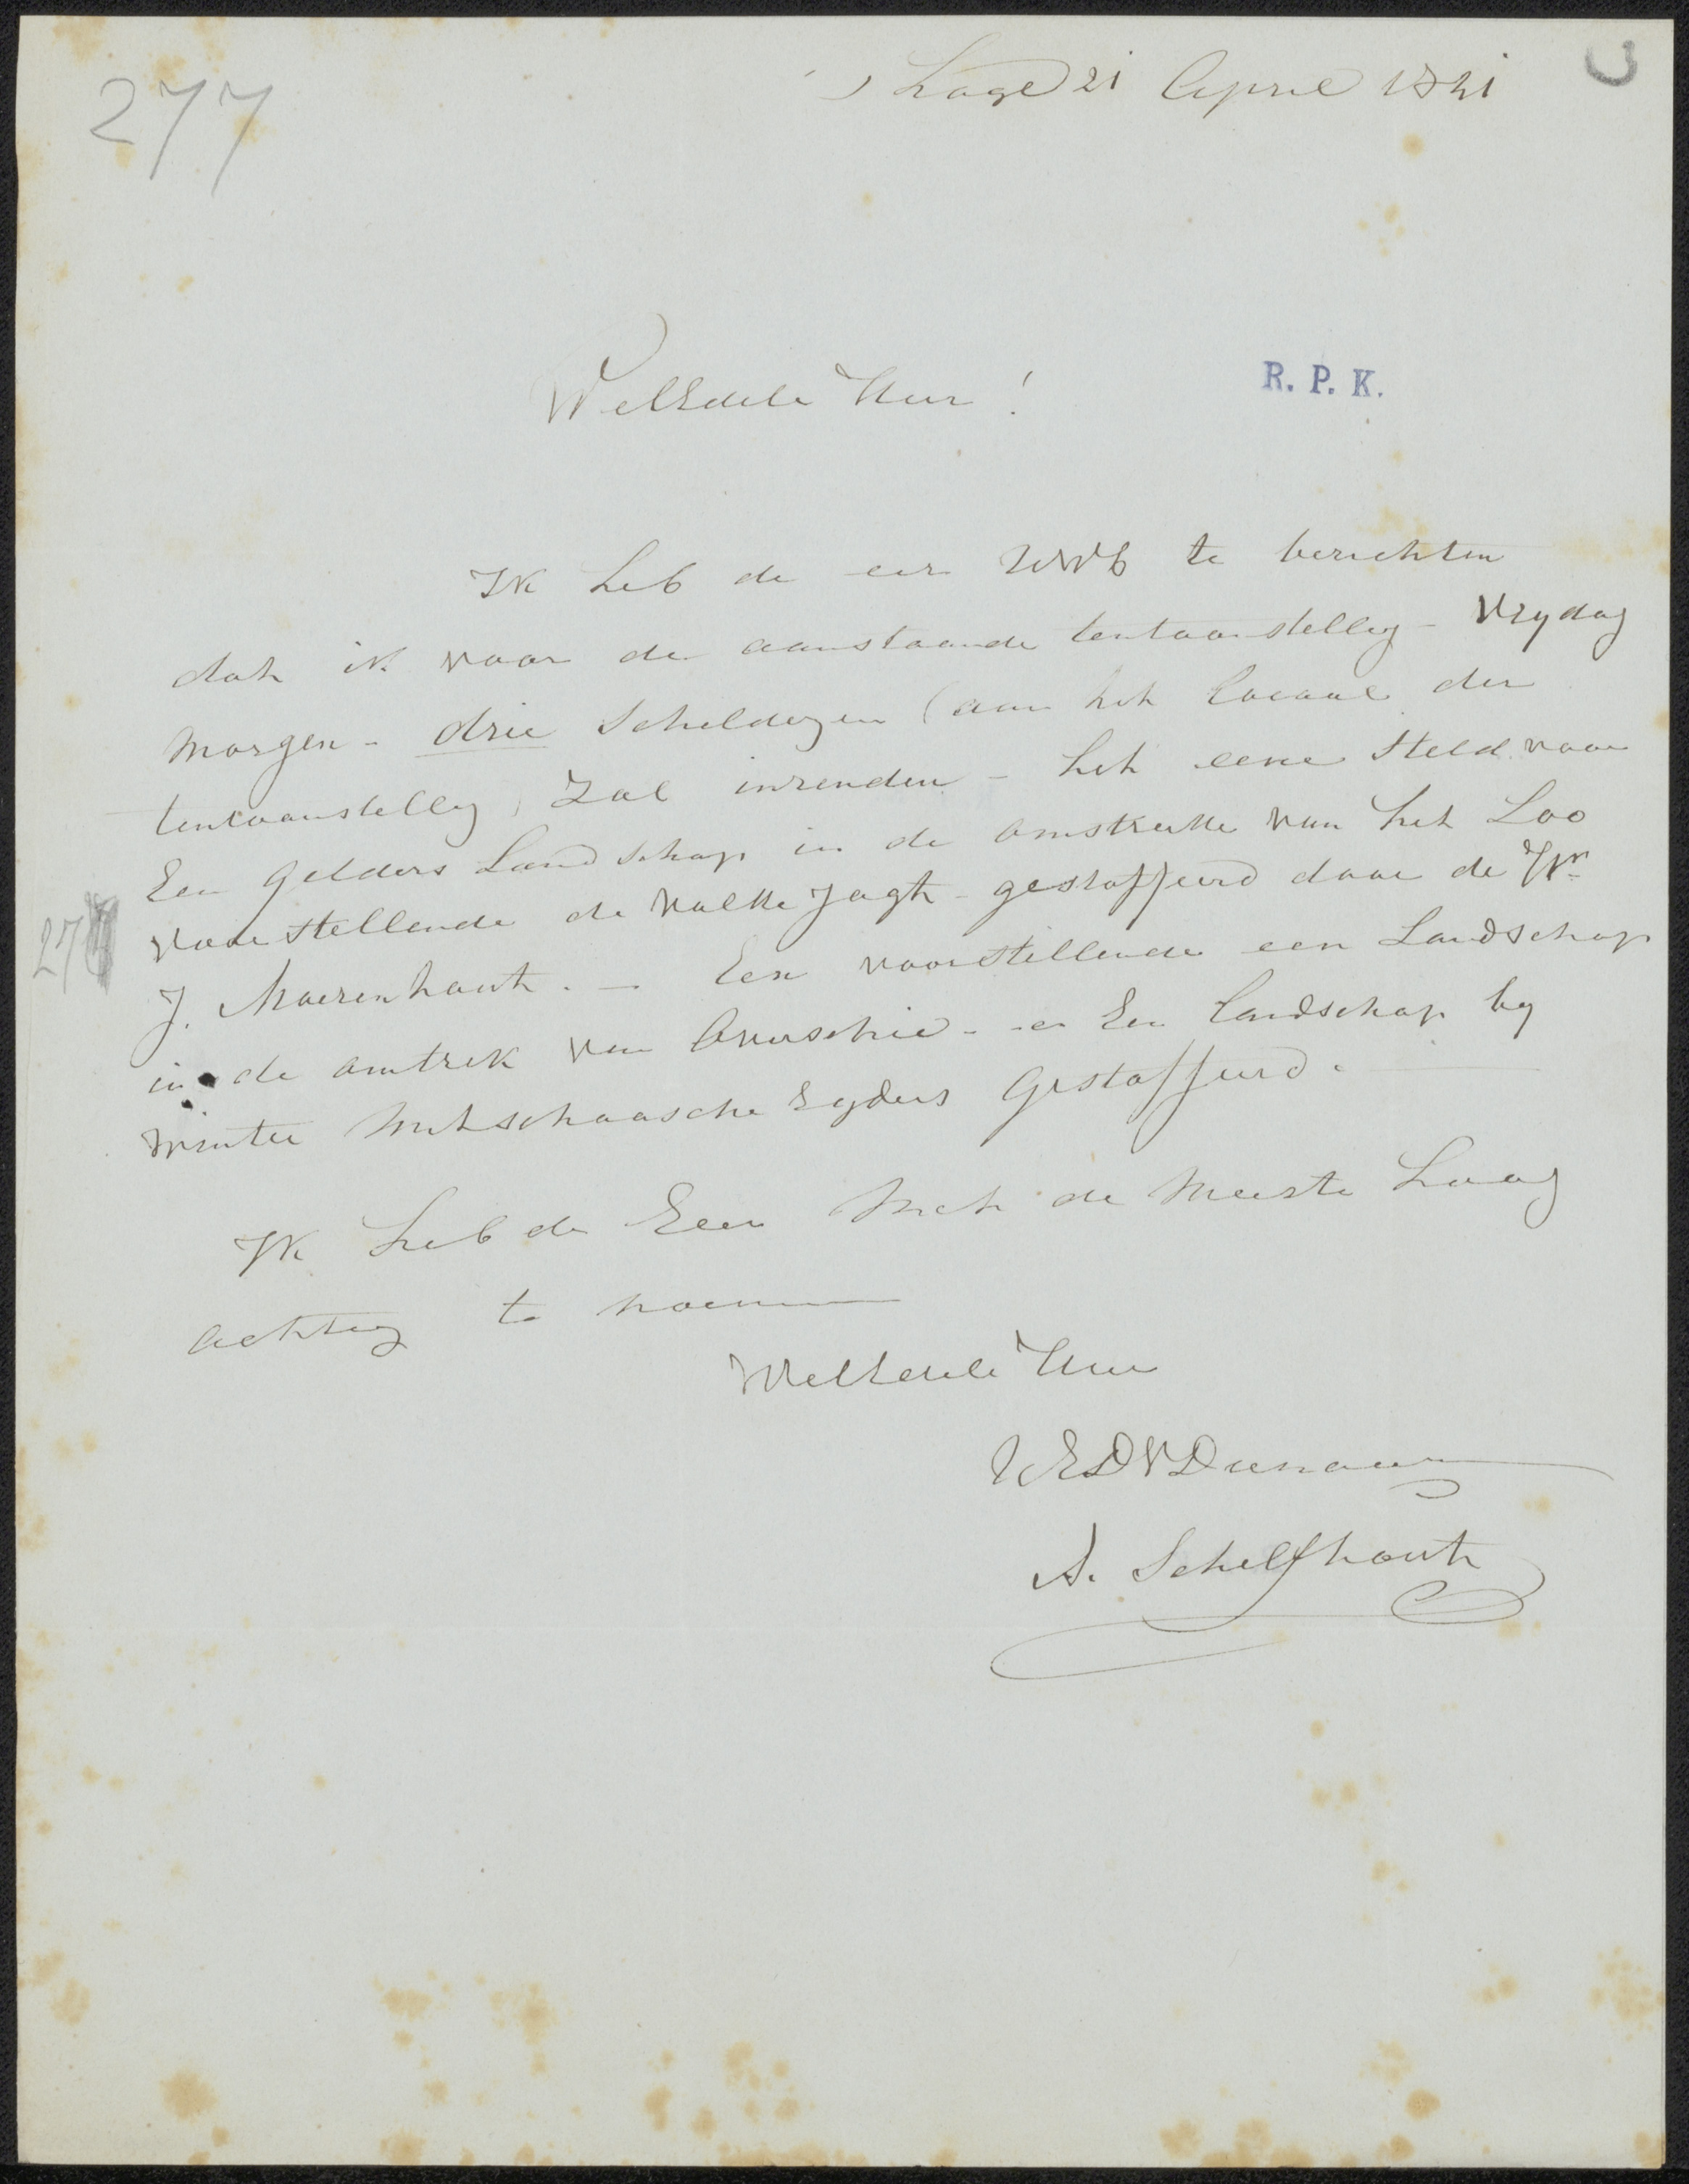 277
's Hage 21 April 1841
WelEdele Heer!
R. P. K.
Ik heb de eer UWE te berichten
dat ik voor de aanstaande tentoonstelling - Vrydag
morgen - drie Schilderyen (aan het locaal der
tentoonstelling) zal inzenden - het eene steld voor
Een Gelders Landschap in de omstreeke van het Loo
voorstellende de Valke Jagt - gestoffeerd door de Hr
27
J. Moerenhout. - Een voorstellende een Landschap
in de omtrek van Overschie - en Een landschap by
winter met schaasche Ryders Gestoffeerd.
Ik heb de Eer met de meeste Hoog
achting te noemen
WelEdele Heer
UEDVDienaar
A. Schelfhout